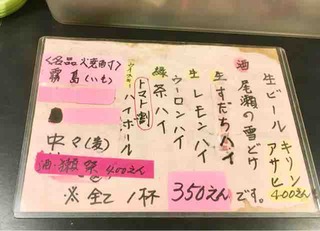 生ビール キリン
アサヒ 400えん
酒 尾瀬の雪どけ
生すだちハイ
生レモンハイ
ウーロンハイ
緑茶ハイ
トマト割
ハイボール
〈名品焼酎〉
霧島(いも)
中々(麦)
酒・獺祭 400えん
※全て1杯350えんです。